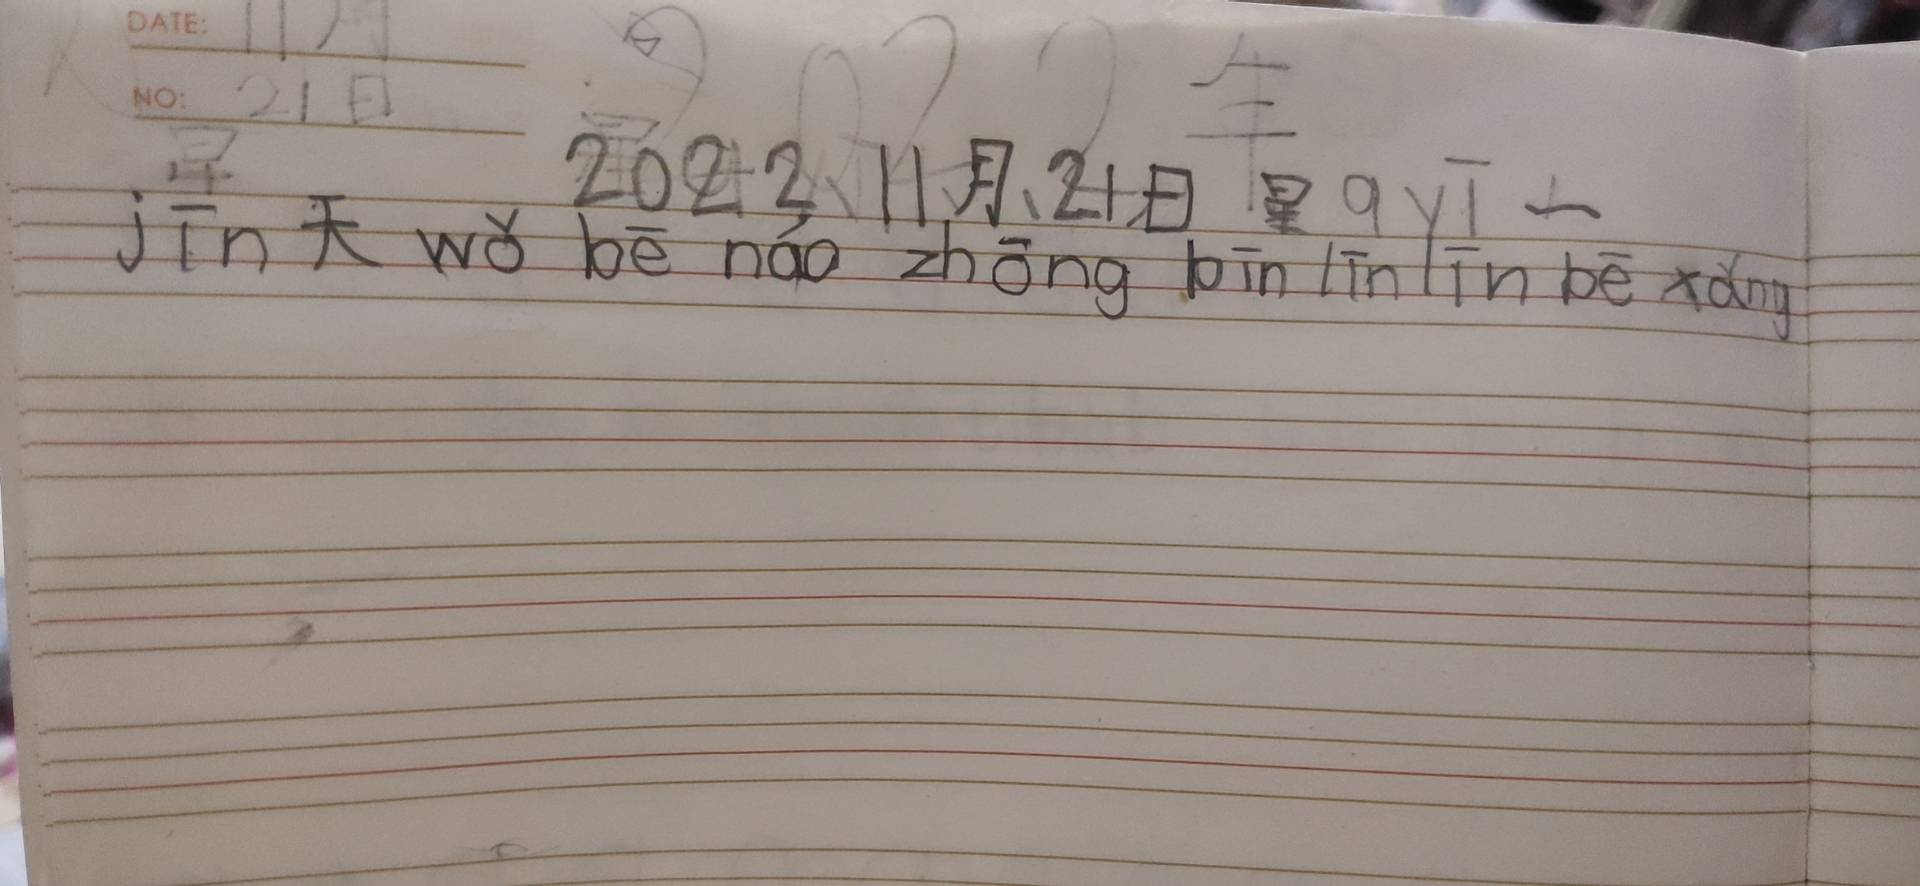 DATE: 11月
NO: 21日
2022年
2022、11月、21日 星qyī一
jīn天 wǒ bē náo zhōng bīn līn līn bē xǎng